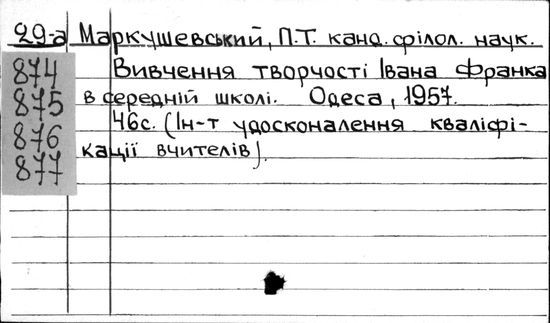 29-а Маркушевський, П.Т. канд. філол. наук.
874 Вивчення творчості Івана Франка
875 в середній школі. Одеса, 1957.
876 46с. (Ін-т удосконалення кваліфі-
877 кації вчителів).